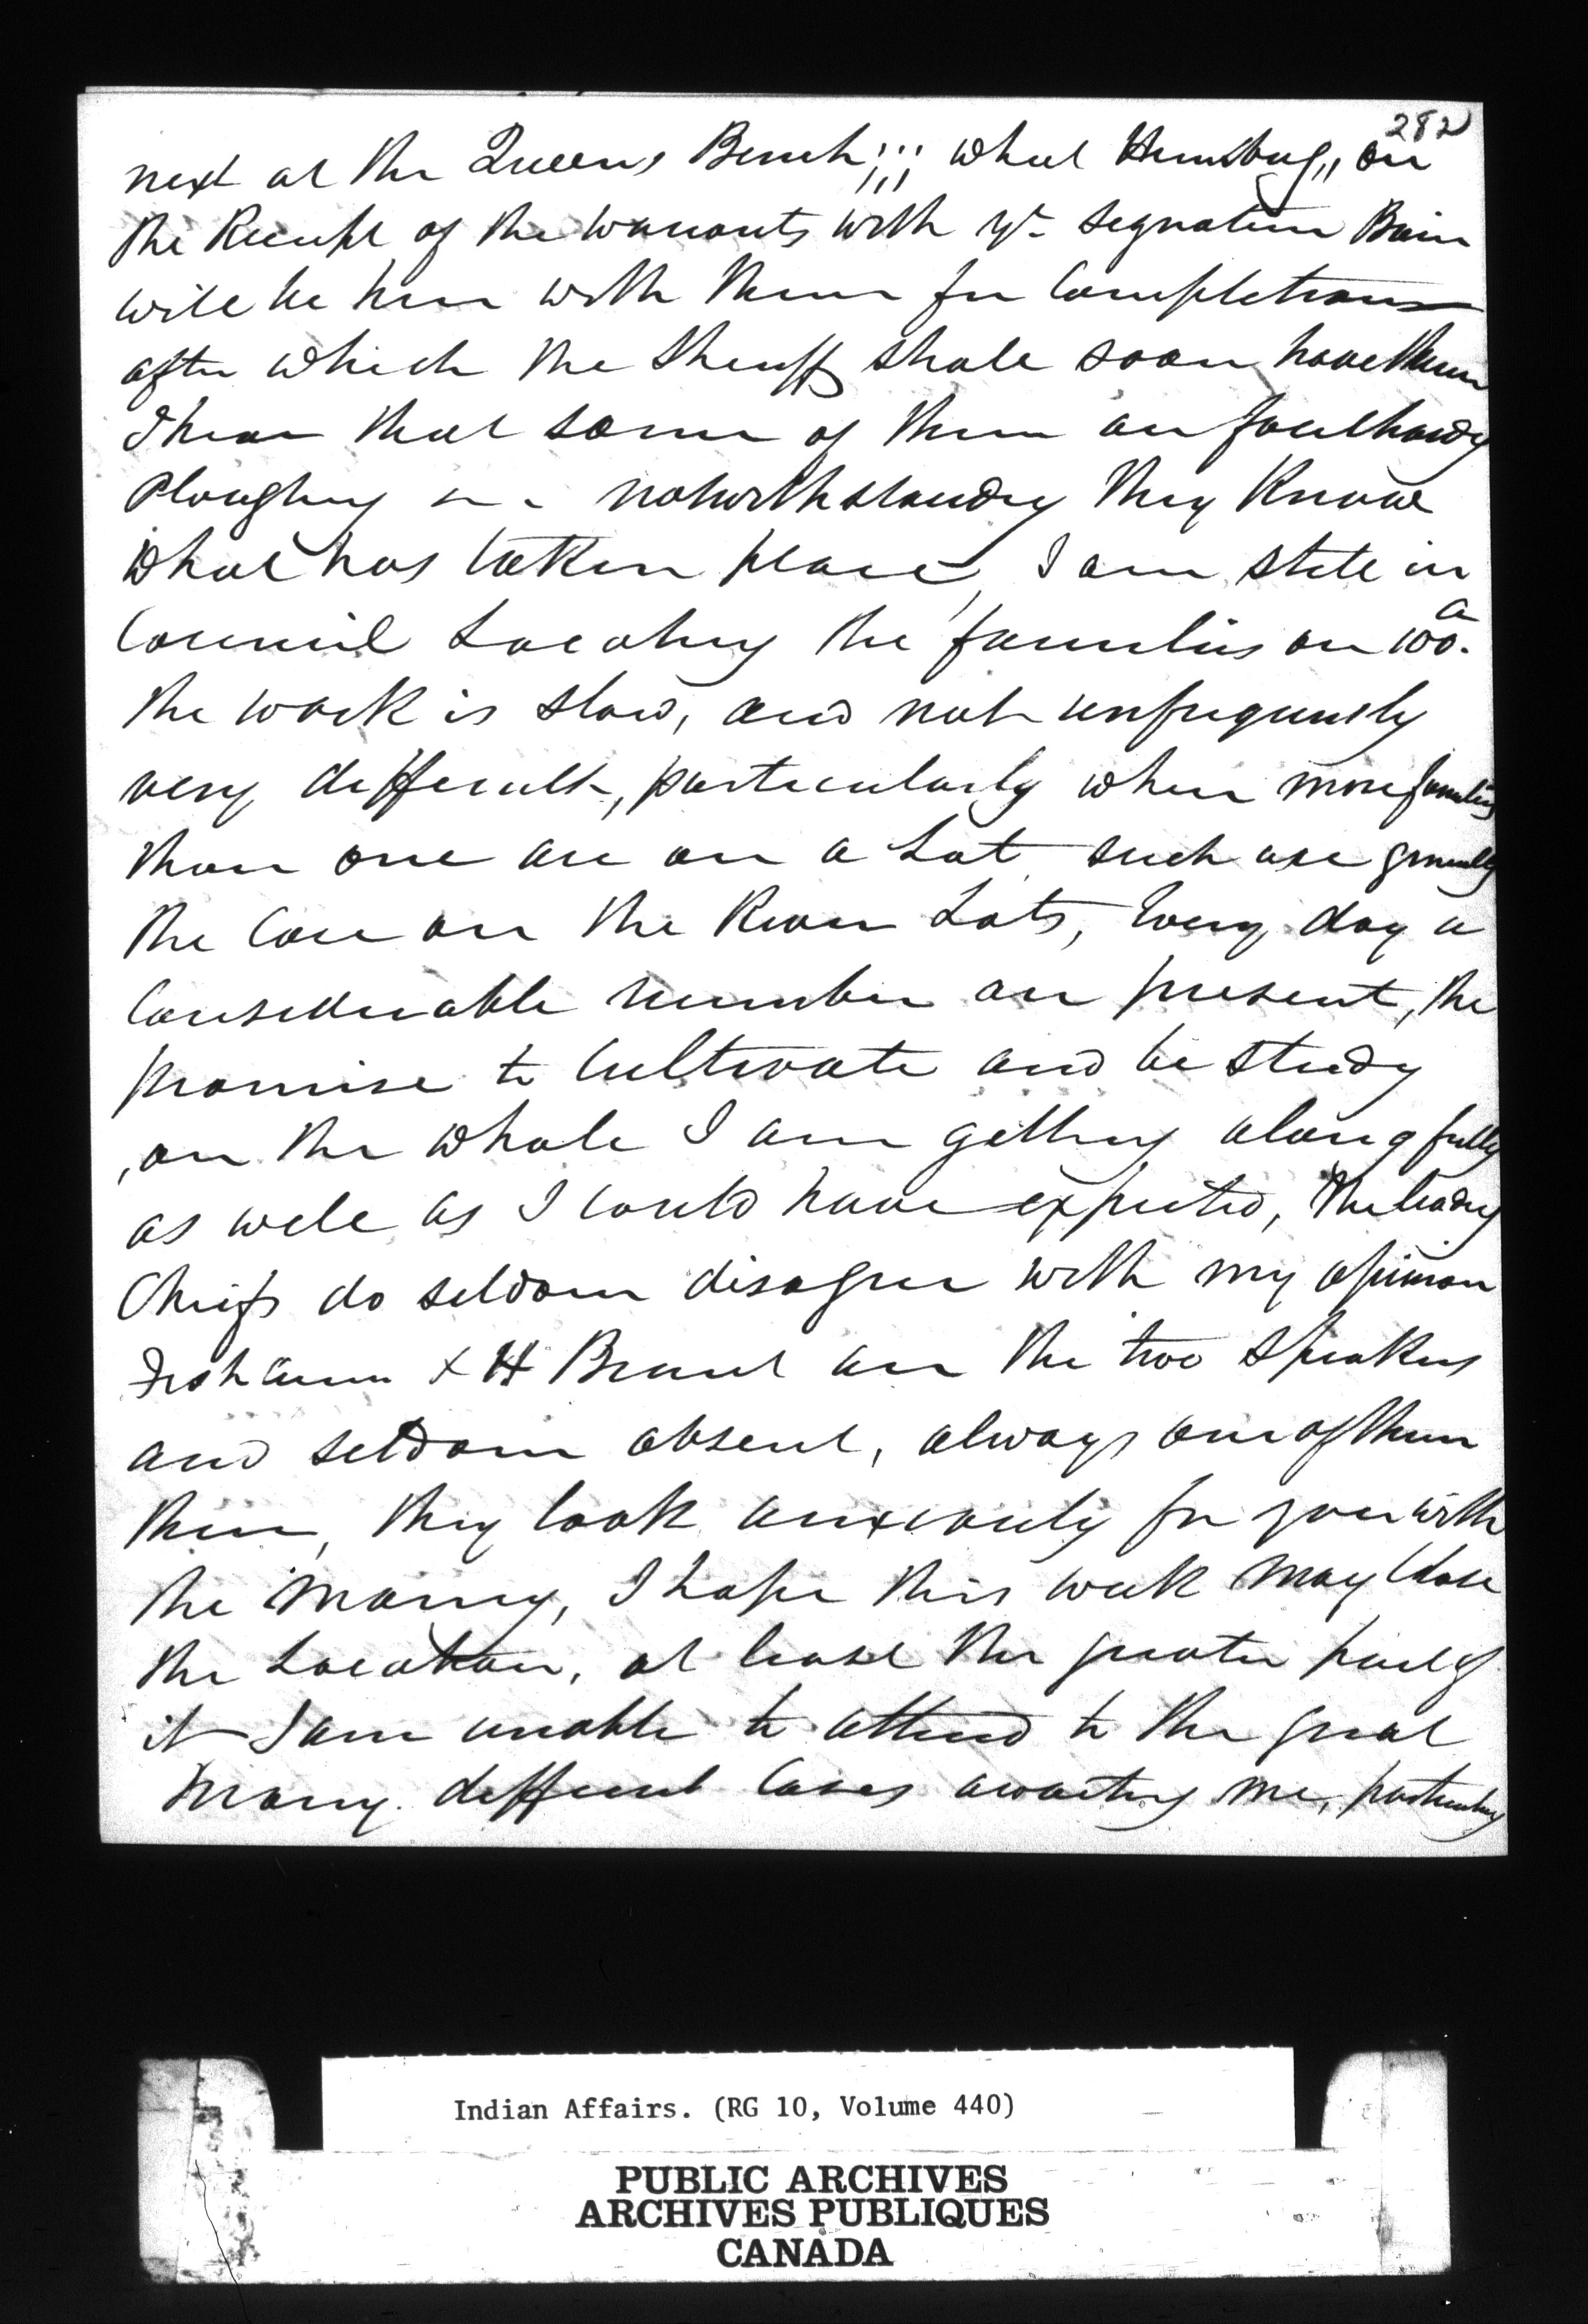 282
next at the Queens Bench!!! what Humbug,, on
the Receipt of the warrants with yr signature Bain
will be here with them for Completion
after which the Sheriff shall soon have them
I hear that some of them are foolhardy
Ploughing notwithstanding they Know
what has taken place, I am still in
Council Locating the families on 100 a.
the work is slow, and not unfrequently
very difficult, particularly when more families
than one are on a Lot such are generally
the Case on the River Lots, Every day a
Considerable number are present, the
promise to Cultivate and be steady
, on the whole I am getting along fully
as well as I could have expected, the leading
Chiefs do seldom disagree with my opinion
Fishcarrier & H Brant are the two Speakers
and seldom absent, always one of them
there, they look anxiously for you with
the Money, I hope this week may Close
the Location, at least the greater part of
it I am unable to attend to the great
many different Cases awaiting me, particularly
Indian Affairs. (RG 10, Volume 440)
PUBLIC ARCHIVES
ARCHIVES PUBLIQUES
CANADA